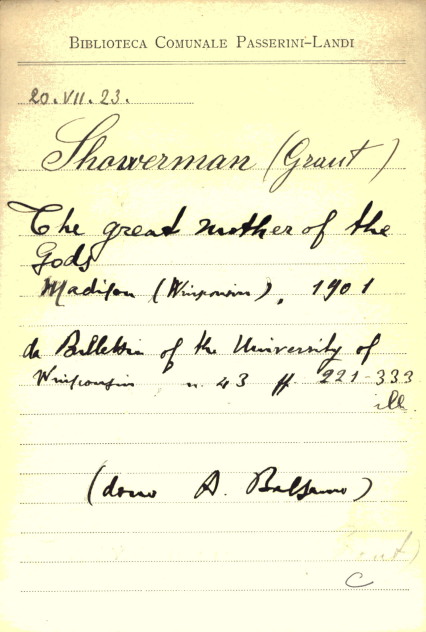 BIBLIOTECA COMUNALE PASSERINI-LANDI
20.VII.23.
Showerman (Grant)
The great mother of the
Gods
Madison (Winsconsin), 1901
da Bulletin of the University of
Winsconsin n. 43 ff 221-333
ill.
(dono A. Balsamo)
C